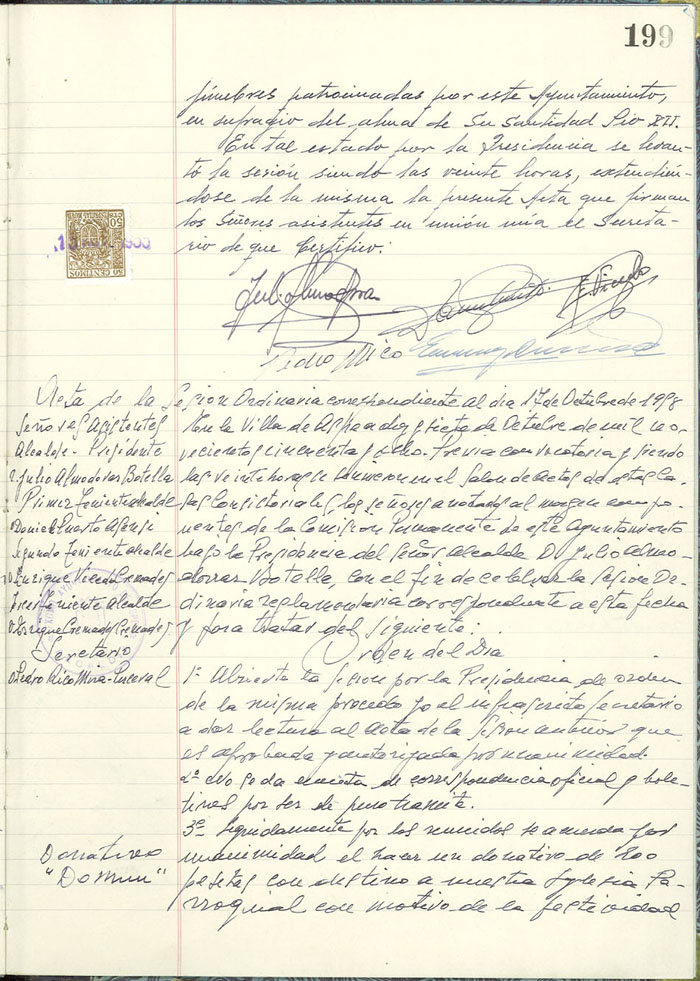 199
fúnebres patrocinadas por este Ayuntamiento,
en sufragio del alma de Su Santidad Pio XII.
En tal estado por la Presidencia se levan-
tó la sesión siendo las veinte horas, extendién-
dose de la misma la presente Acta que firman
los Señores asistentes en unión mía el Secreta-
rio de que Certifico:
50 CENTIMOS
Julio Almodovar
Pedro Mico
Acta de la Sesion Ordinaria correspondiente al dia 17 de Octubre de 1958
Señores Asistentes
Alcalde-Presidente
D. Julio Almodovar Botella
Primer Teniente Alcalde
D. Daniel Puerto Alonso
Segundo Teniente alcalde
D. Enrique Vicedo Cremades
Tercer teniente Alcalde
D. Enrique Cremades Cremades
Secretario
D. Pedro Rico Mira-Perceval
En la Villa de Aspe a diez y siete de Octubre de mil no-
vecientos cincuenta y ocho. Previa convocatoria y siendo
las veinte horas se reunieron en el Salon de actos de estas Ca-
sas Consistoriales, los señores anotados al margen compo-
nentes de la Comision Permanente de este Ayuntamiento
bajo la Presidencia del Señor Alcalde D. Julio Almo-
dovar Botella, con el fin de celebrar la Sesion Or-
dinaria reglamentaria correspondiente a esta fecha
y para tratar del siguiente:
Orden del Dia
1º Abierta la Sesion por la Presidencia de orden
de la misma procedo yo el infrascrito Secretario
a dar lectura al Acta de la Sesion anterior que
es aprobada y autorizada por unanimidad.
2º se da cuenta de correspondencia oficial y bole-
tines por ser de puro tramite.
3º Seguidamente por los reunidos se acuerda por
unanimidad el hacer un donativo de 200
pesetas con destino a nuestra Iglesia Pa-
rroquial con motivo de la festividad
Donativo
"Domun"